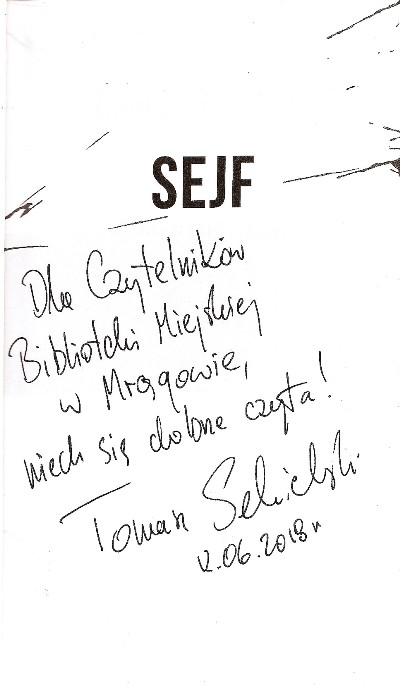 SEJF
Dla Czytelników
Biblioteki Miejskiej
w Mrągowie,
niech się dobrze czyta!
Tomasz Sekielski
12.06.2018r